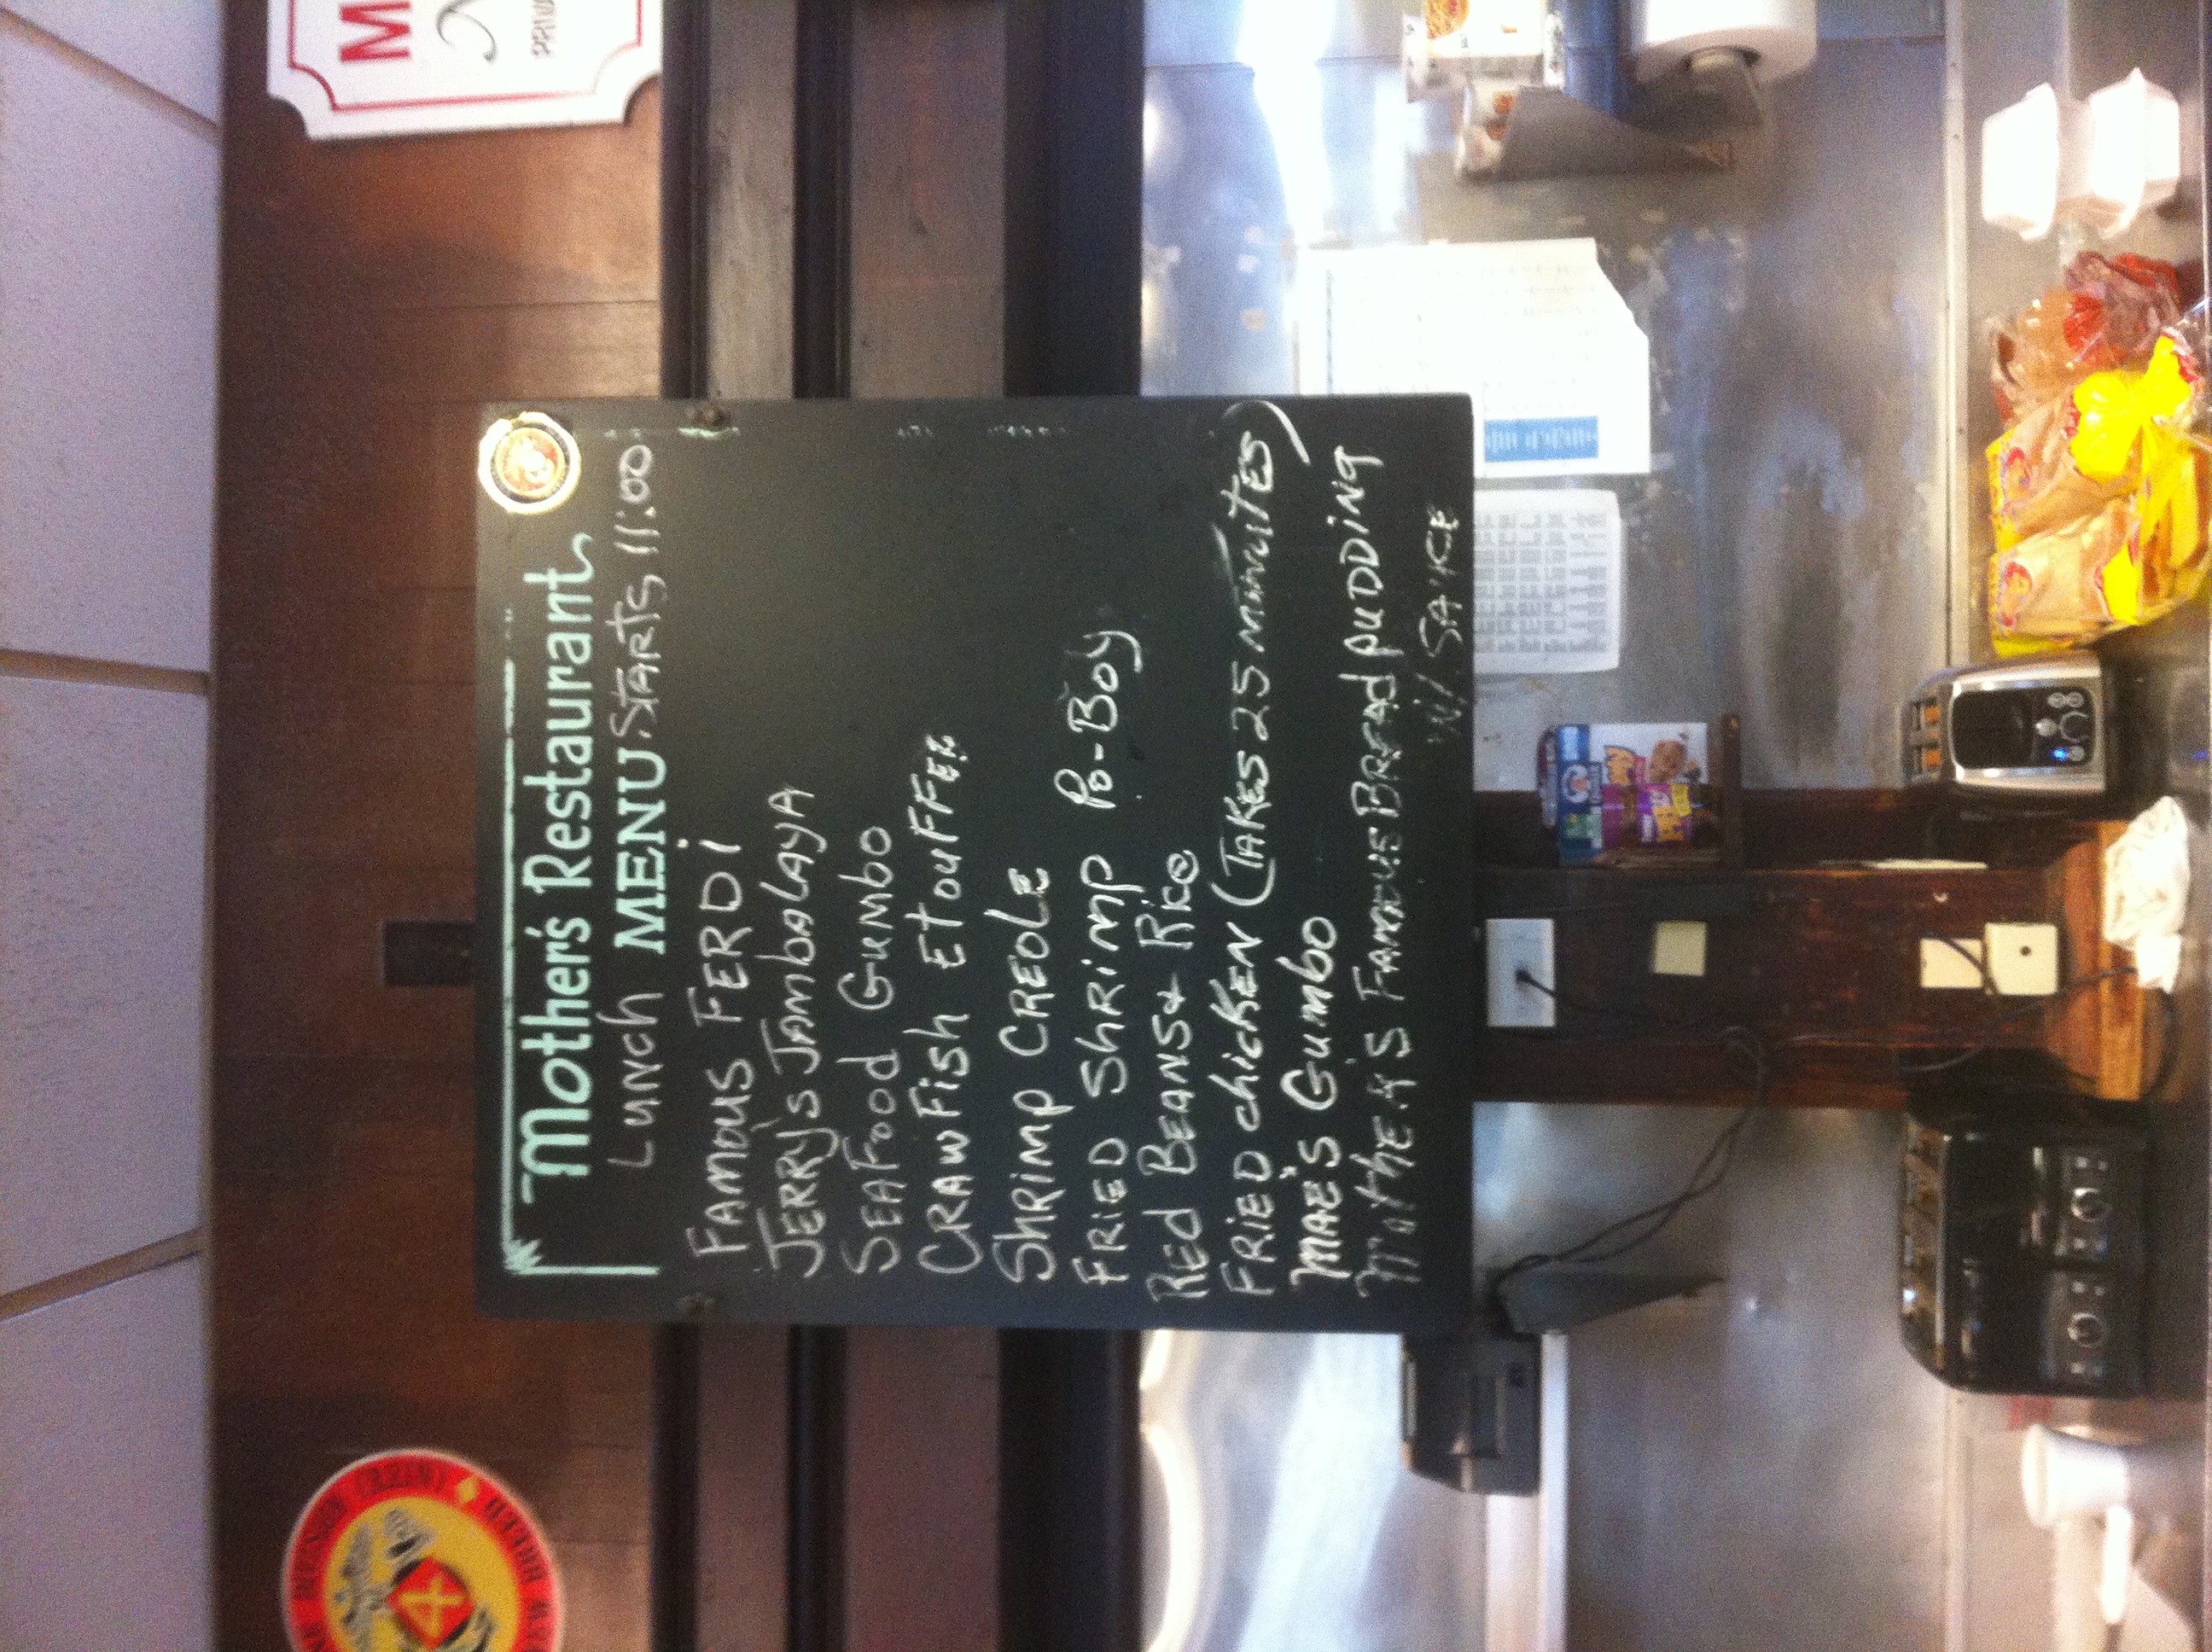 Mother's Restaurant
Lunch MENU STARTS 11:00
FAMOUS FERDI
JERRY'S JAMBALAYA
SEAFOOD GUMBO
CRAWFISH ETOUFFEE
SHRIMP CREOLE
FRIED SHRIMP PO-BOY
RED BEANS & RICE
FRIED CHICKEN (TAKES 25 MINUTES)
MAE'S GUMBO
MOTHER'S FAMOUS BREAD PUDDING
W/ SAUCE